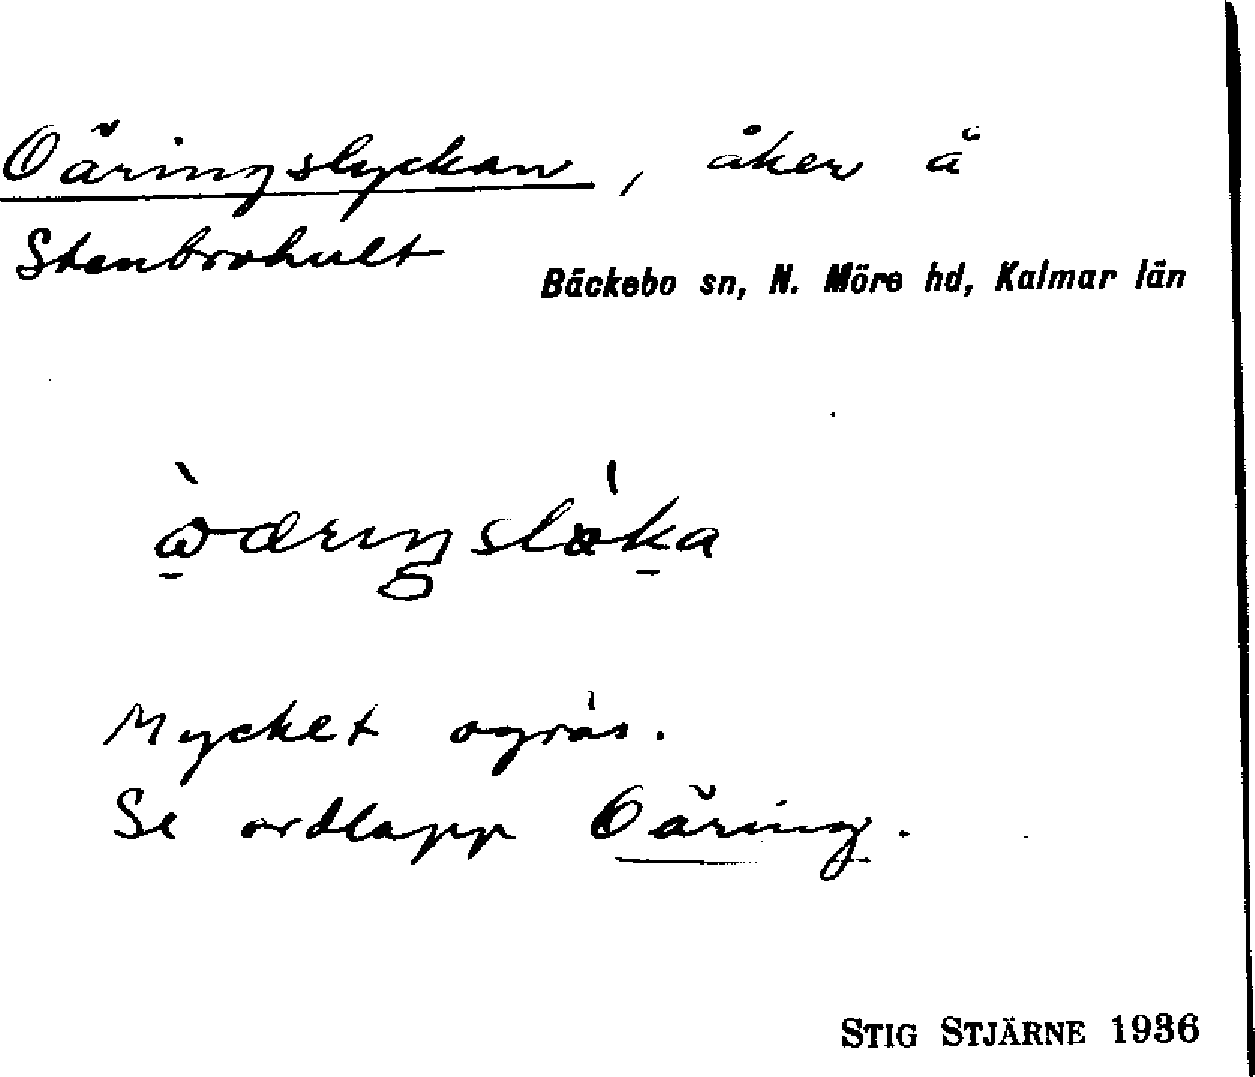 Oäringslyckan, åker å
Stenbrohult
Bäckebo sn, N. Möre hd, Kalmar län
Mycket ogräs.
Se ordlapp Oäring.
STIG STJÄRNE 1936